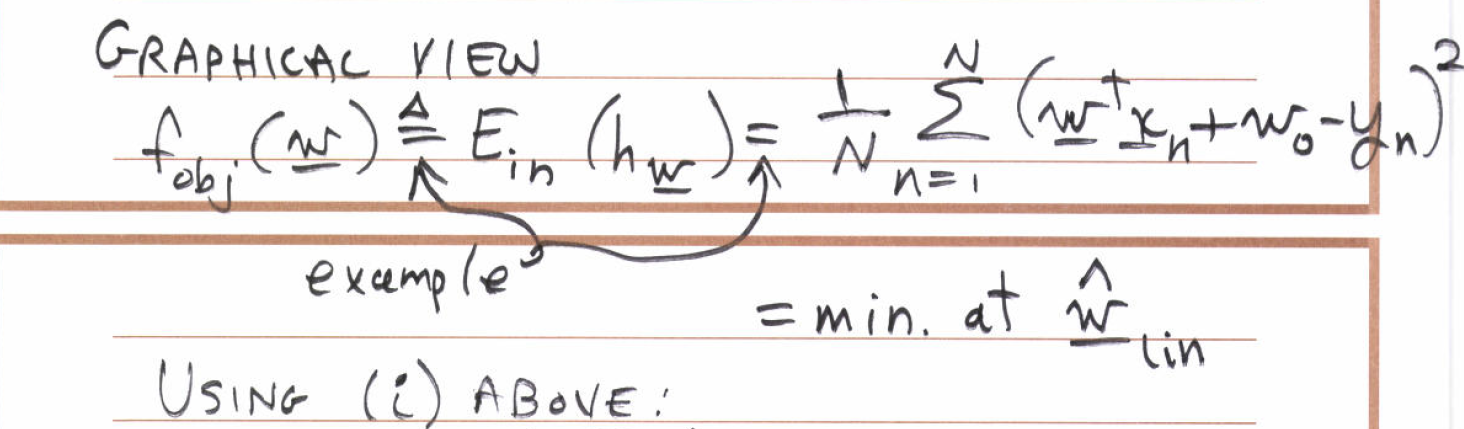 GRAPHICAL VIEW
f_obj(w) ≜ E_in (h_w) = 1/N Σ_{n=1}^{N} (w^T x_n + w_0 - y_n)^2
example
= min. at ŵ_lin
USING (i) ABOVE: